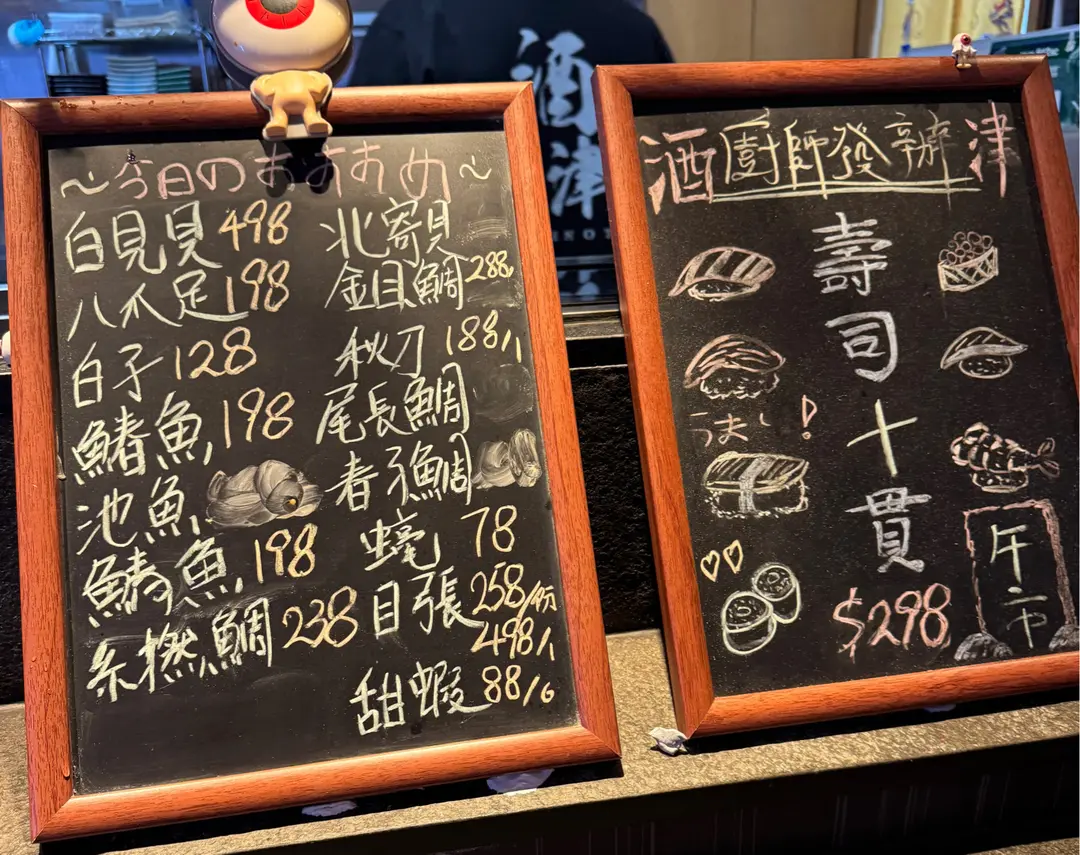 酒津
~今日のおすすめ~
白見貝 498
八爪足 198
白子 128
鰆魚 198
池魚
鯖魚 198
糸撚鯛 238
北寄貝
金目鯛 288
秋刀 188/1
尾長鯛
春子鯛
蠔 78
目張 258/4分
498/1
甜蝦 88/6
酒 廚師發辦 津
壽司十貫
$298
うまい!
午市